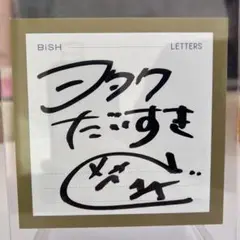 BiSH LETTERS
ヲタク
だいすき